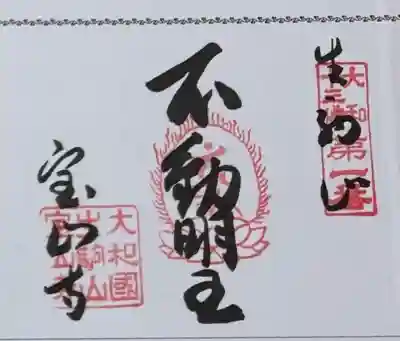 生駒山
大和十三佛第一番
不動明王
宝山寺
大和國
生駒山